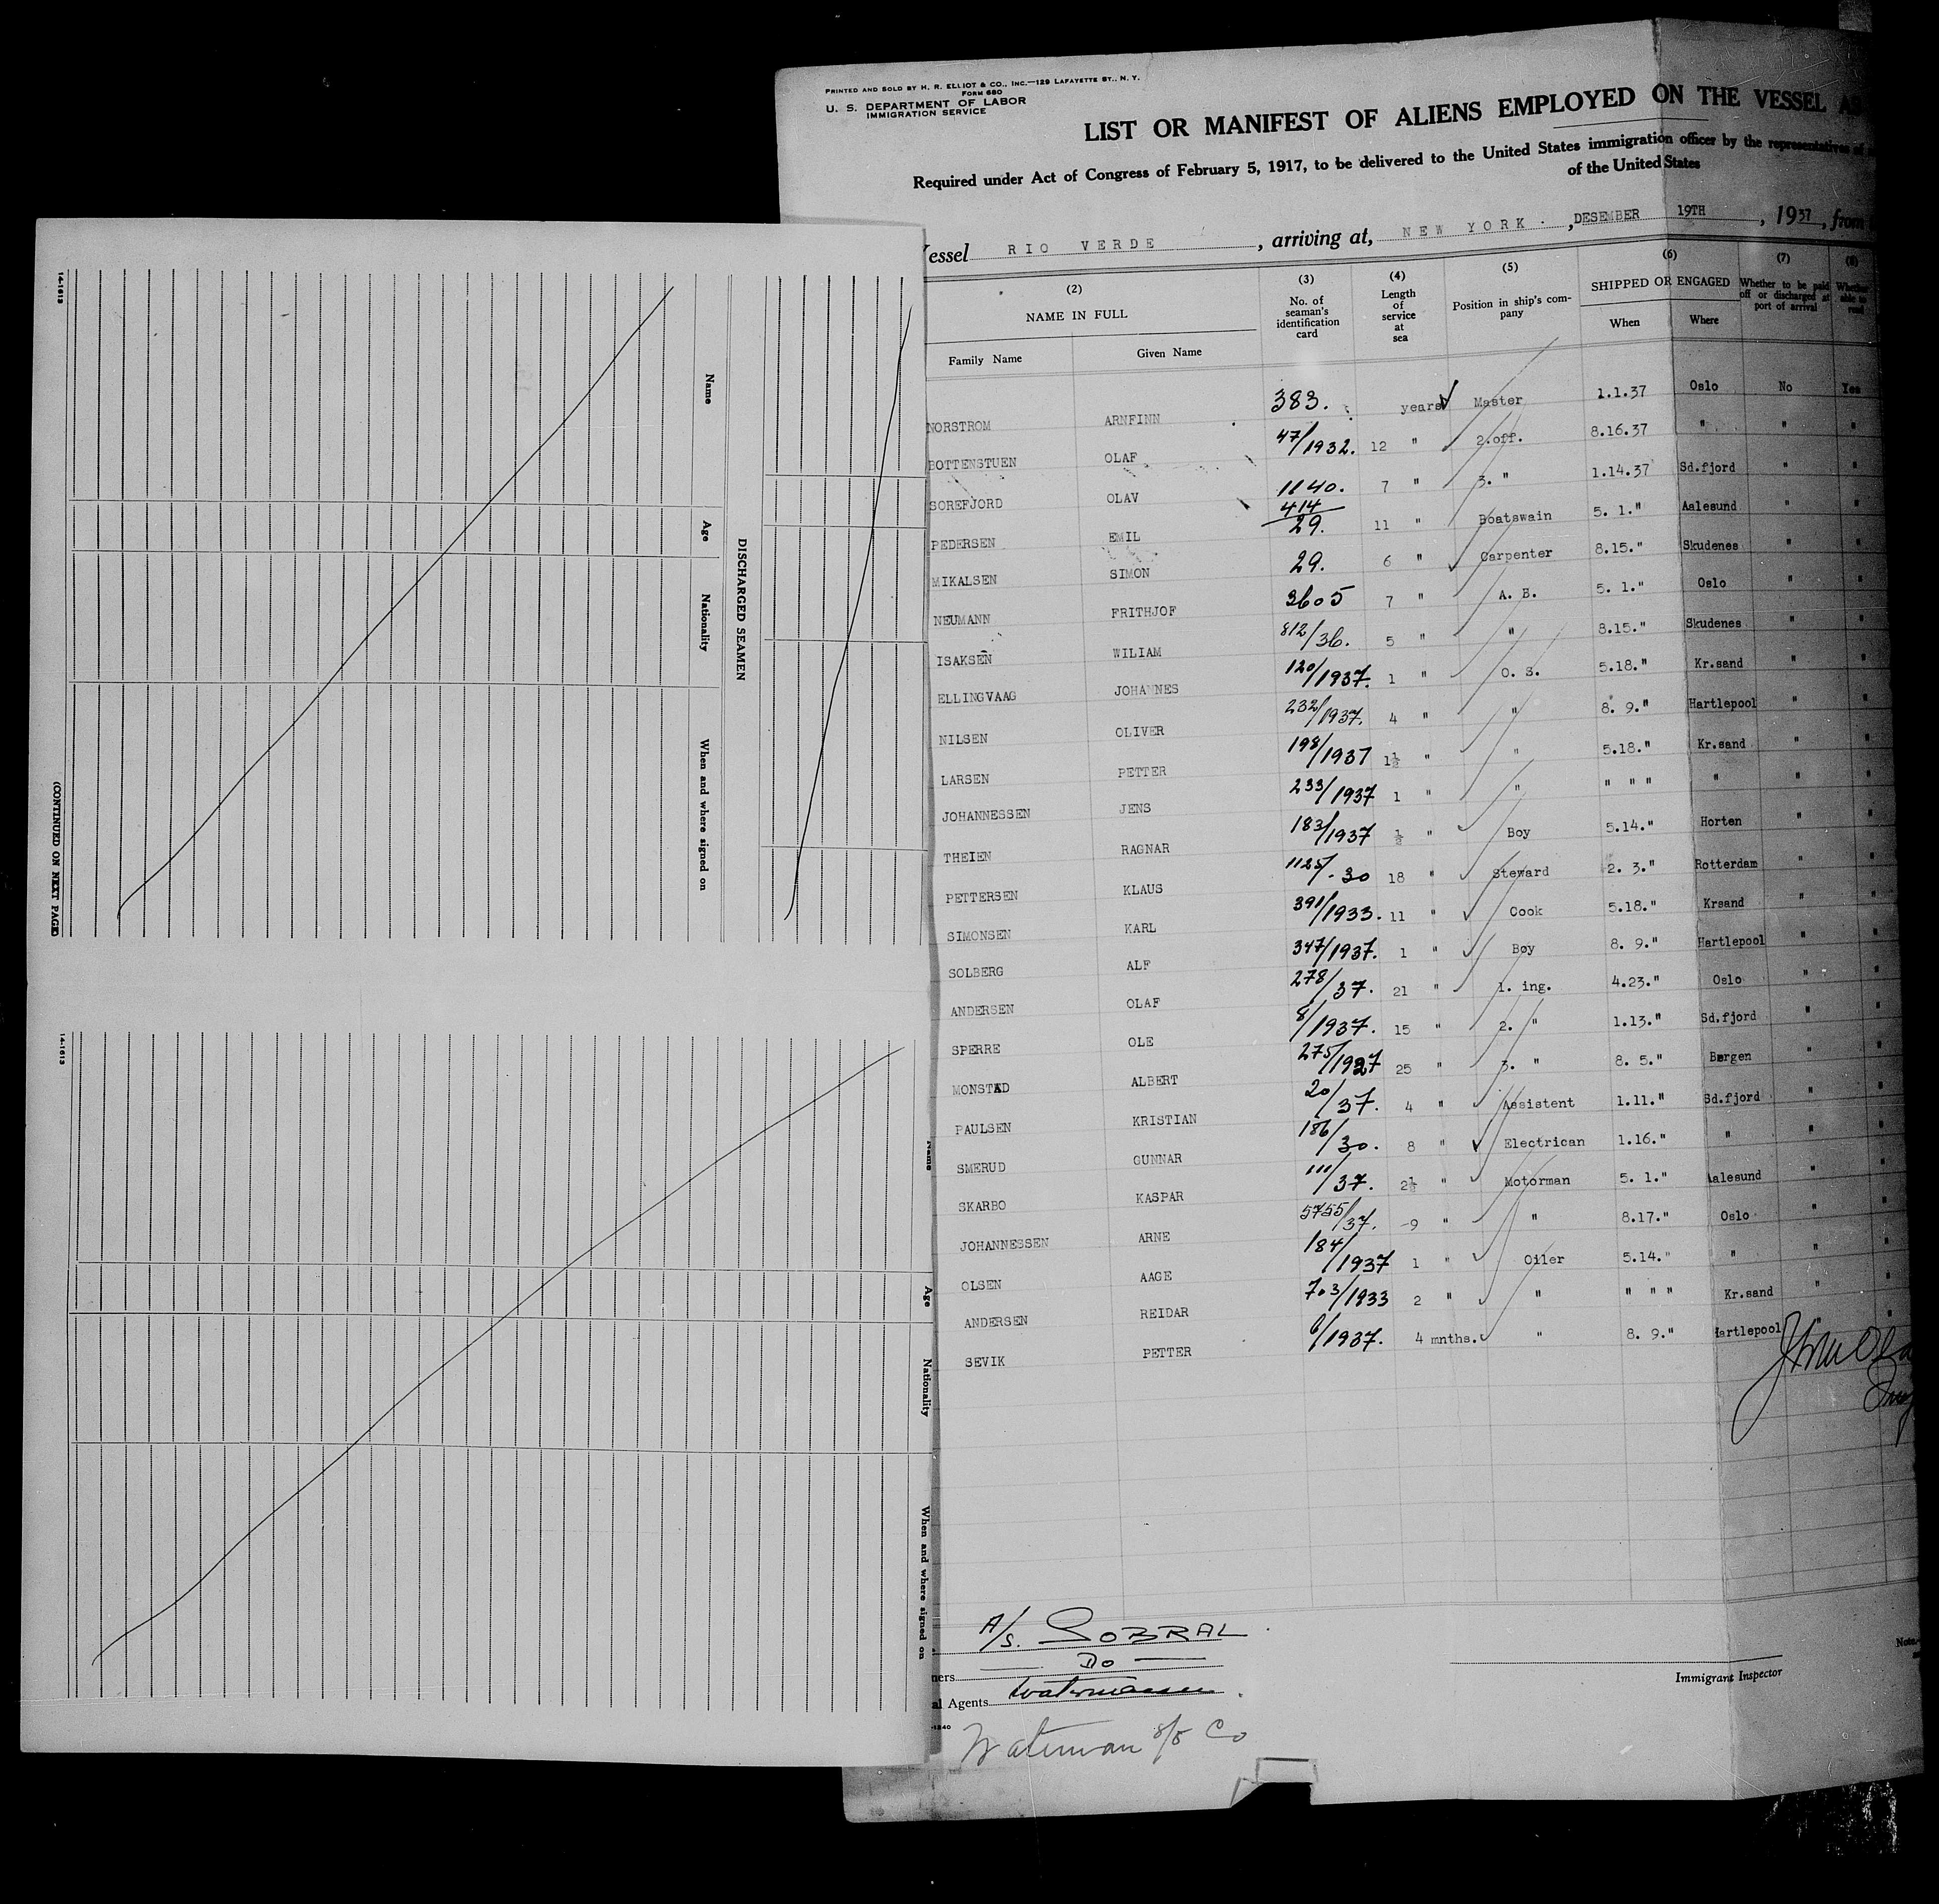 PRINTED AND SOLD BY H. R. ELLIOT & CO., INC.—129 LAFAYETTE ST., N. Y.
FORM 680
U. S. DEPARTMENT OF LABOR
IMMIGRATION SERVICE
LIST OR MANIFEST OF ALIENS EMPLOYED ON THE VESSEL AS
Required under Act of Congress of February 5, 1917, to be delivered to the United States immigration officer by the representatives of
of the United States
essel RIO VERDE , arriving at, NEW YORK . , DESEMBER 19TH , 1937 , from
(2) (3) (4) (5) (6) (7) (8)
NAME IN FULL No. of seaman's identification card Length of service at sea Position in ship's company SHIPPED OR ENGAGED Whether to be paid off or discharged at port of arrival Whether able to read
Family Name Given Name When Where
NORSTROM ARNFINN 383. years Master 1.1.37 Oslo No Yes
BOTTENSTUEN OLAF 47/1932. 12 " 2.off. 8.16.37 " " "
SOREFJORD OLAV 1140. 7 " 3. " 1.14.37 Sd.fjord " "
PEDERSEN EMIL 414/29. 11 " Boatswain 5. 1." Aalesund " "
MIKALSEN SIMON 29. 6 " Carpenter 8.15." Skudenes " "
NEUMANN FRITHJOF 3605 7 " A. B. 5. 1." Oslo " "
ISAKSEN WILIAM 812/36. 5 " " 8.15." Skudenes " "
ELLINGVAAG JOHANNES 120/1937. 1 " O. S. 5.18." Kr.sand " "
NILSEN OLIVER 232/1937. 4 " " 8. 9." Hartlepool " "
LARSEN PETTER 198/1937 1½ " " 5.18." Kr.sand " "
JOHANNESSEN JENS 233/1937 1 " " " " " " " "
THEIEN RAGNAR 183/1937 ½ " Boy 5.14." Horten " "
PETTERSEN KLAUS 1125/-30 18 " Steward 2. 3." Rotterdam " "
SIMONSEN KARL 391/1933. 11 " Cook 5.18." Krsand " "
SOLBERG ALF 347/1937. 1 " Boy 8. 9." Hartlepool " "
ANDERSEN OLAF 278/37. 21 " 1. ing. 4.23." Oslo " "
SPERRE OLE 8/1937. 15 " 2. " 1.13." Sd.fjord " "
MONSTAD ALBERT 275/1927 25 " 3. " 8. 5." Bergen " "
PAULSEN KRISTIAN 20/37. 4 " Assistent 1.11." Sd.fjord " "
SMERUD GUNNAR 186/30. 8 " Electrican 1.16." " " "
SKARBO KASPAR 111/37. 2½ " Motorman 5. 1." Aalesund " "
JOHANNESSEN ARNE 5755/37. -9 " " 8.17." Oslo " "
OLSEN AAGE 184/1937 1 " Oiler 5.14." " " "
ANDERSEN REIDAR 703/1933 2 " " " " " Kr.sand " "
SEVIK PETTER 6/1937. 4 mnths. " 8. 9." Hartlepool " "
A/S. SOBRAL
ners — Do —
al Agents Waterman
-1240
Waterman S/S Co
Immigrant Inspector
Note.
14-1613
Name Age Nationality When and where signed on
DISCHARGED SEAMEN
(CONTINUED ON NEXT PAGE)
14-1613
Name Age Nationality When and where signed on